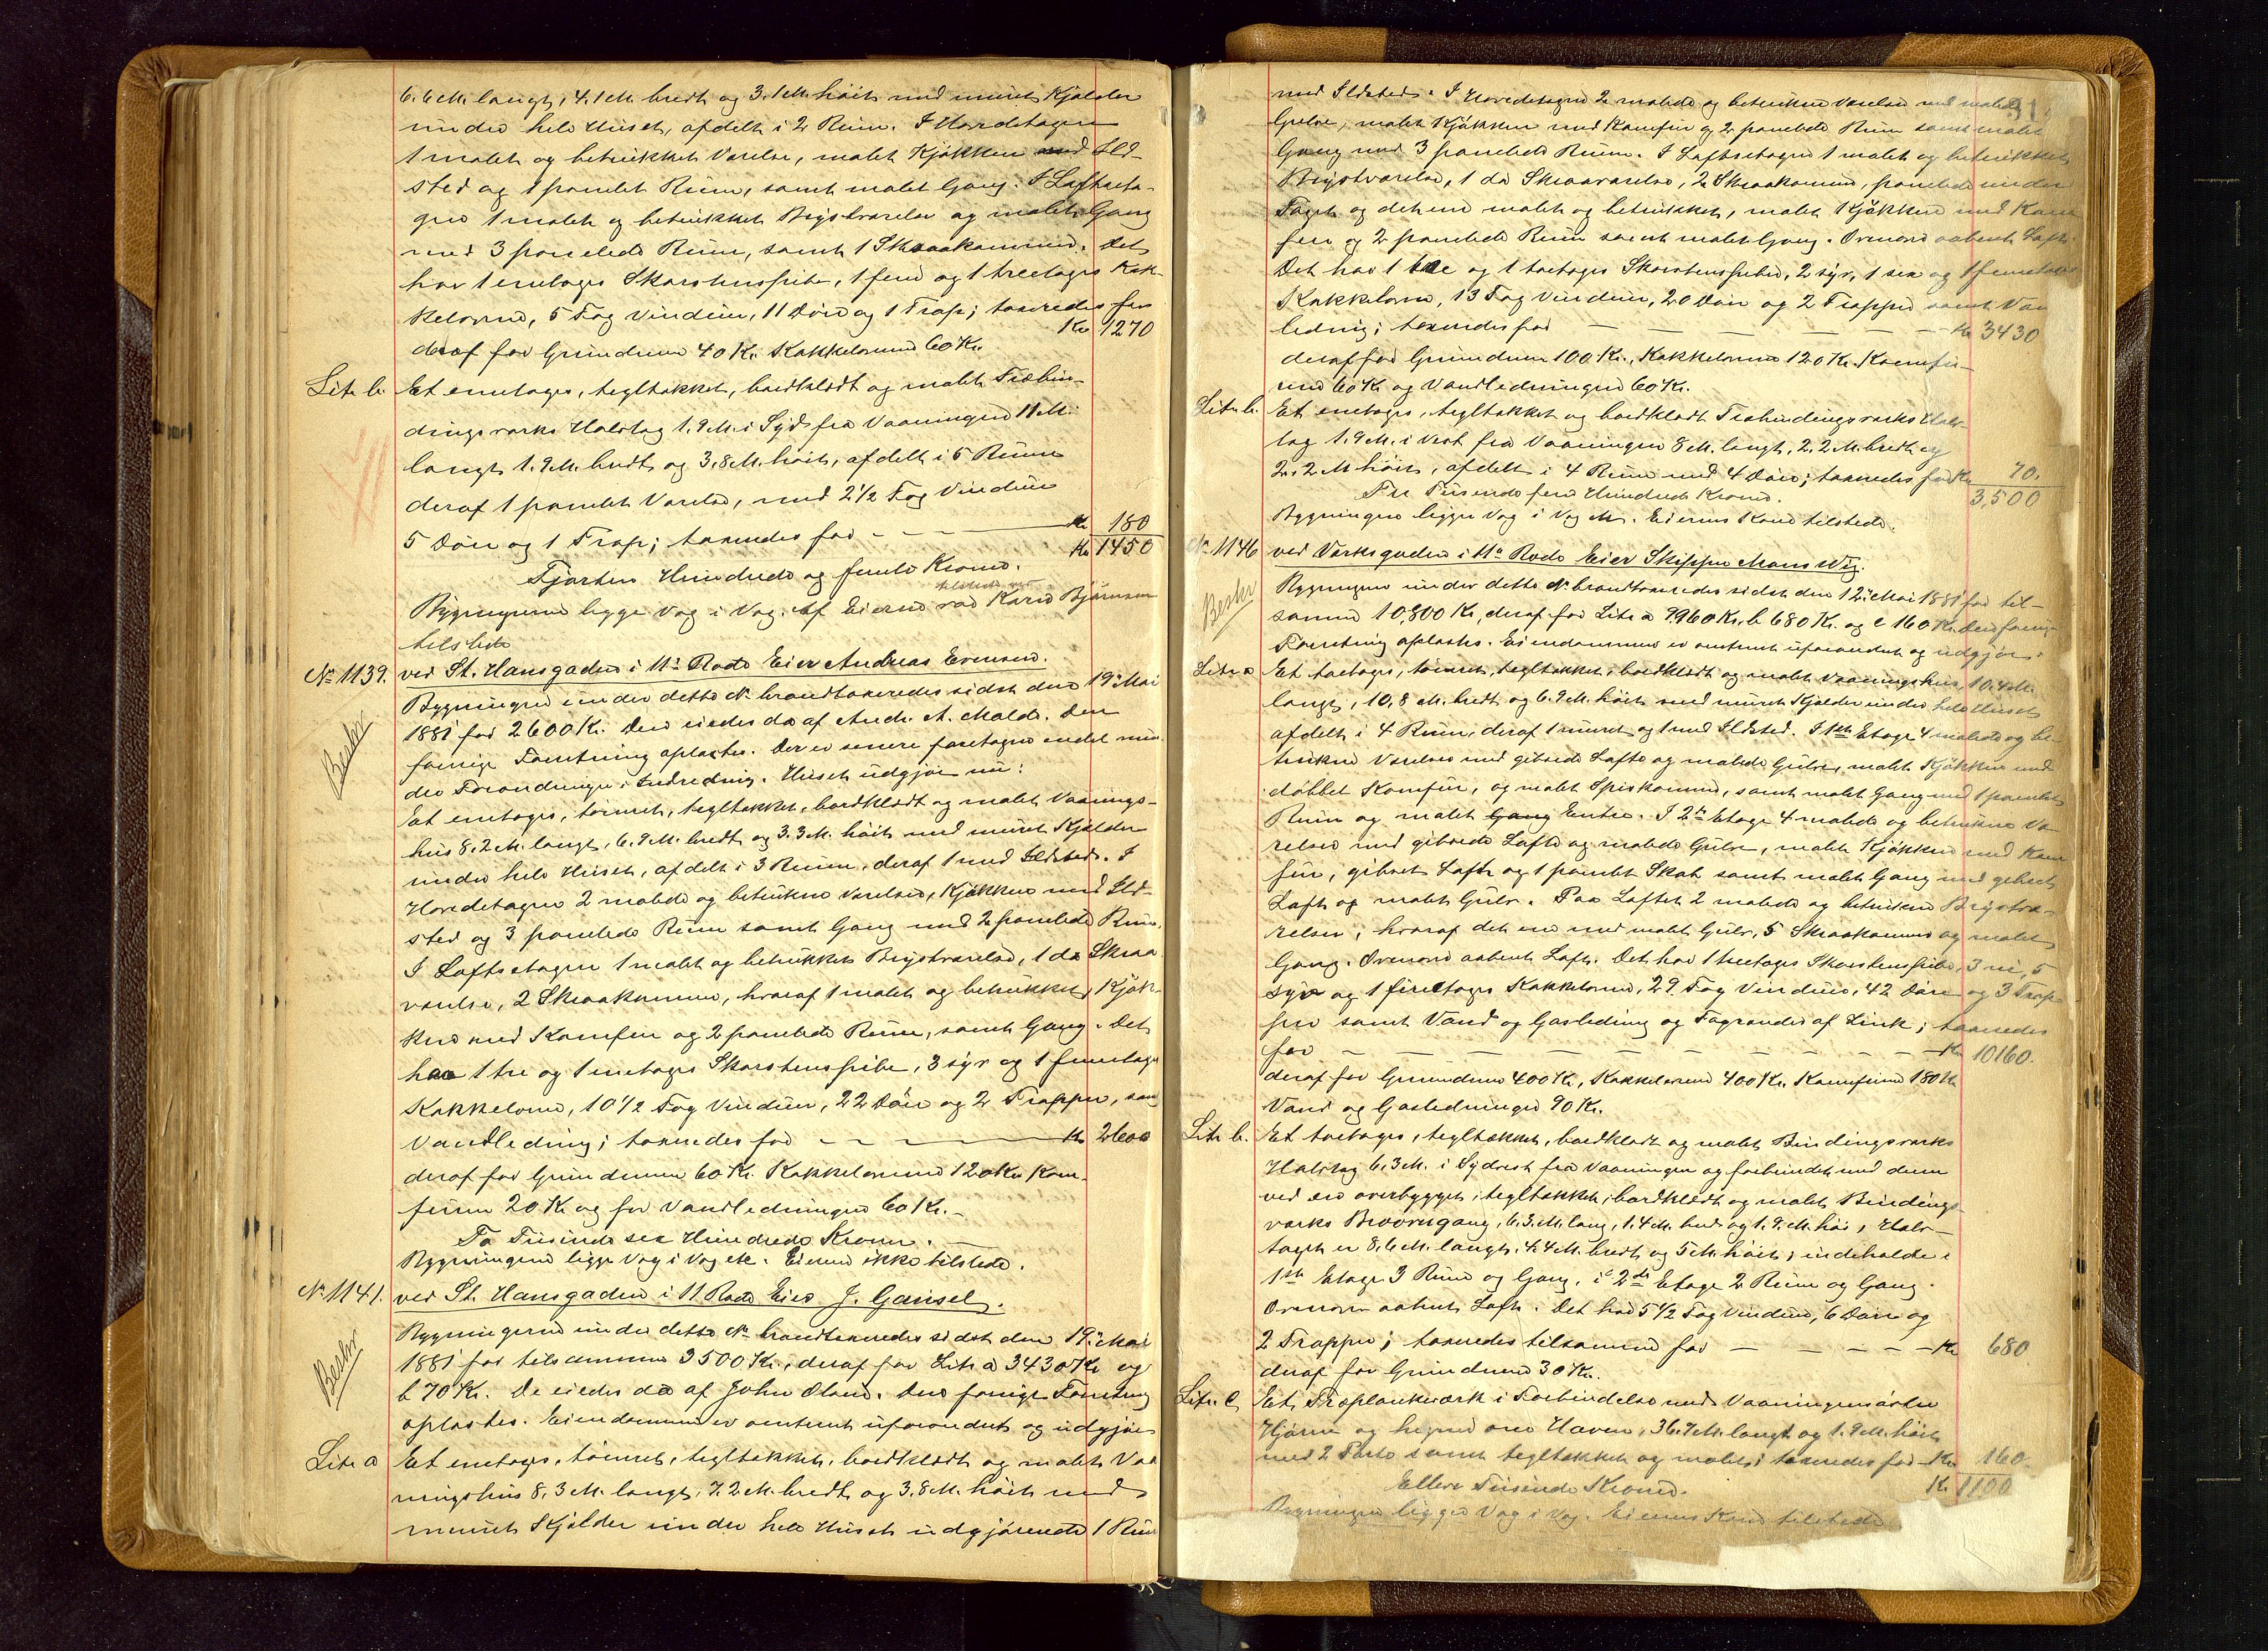 6.6 M. langt, 4.1 M. bredt og 3.1 M. høit med muret Kjælder
under hele Huset, afdelt i 2 Rum. I Hovedetagen
1 malet og betrukket Værelse, malet Kjøkken med Ild-
sted og 1 panelet Rum, samt malet Gang. I Loftseta-
gen 1 malet og betrukket Brystværelse og malet Gang
med 3 panelede Rum, samt 1 Skraakammer. Det
har 1 enetages Skorstenspibe, 1 fem og 1 treetages Kak-
kelovne, 5 Fag Vinduer, 11 Døre og 1 Trap; taxeredes for
Kr 1270
deraf for Grundmur 40 Kr. Kakkelovnene 60 Kr.
Litr b. Et enetages, tegltækket, bordklædt og malet Træbin-
dingsværks Halvtag 1.9 M. i Syd fra Vaaningen 11 M.
langt 1.9 M. bredt og 3.8 M. høit, afdelt i 5 Rum
deraf 1 panelet Værelse, med 2½ Fag Vinduer
5 Døre og 1 Trap; taxeredes for - - Kr 180
Kr 1450
Fjorten Hundrede og femti Kroner.
Bygningerne ligge Vag i Vag. Af Eierne var Karen Bjørnsen
tilstede
No 1139. ved St. Hansgaden i 11te Rode Eier Andreas Evensen.
Bygningen under dette No brandtaxeredes sidst den 19de Mai
1881 for 2600 Kr. Den eiedes da af Andr. A. Malde. Den
Besler
forrige Forretning oplæstes. Der er senere foretagne endel min-
dre Forandringer i Indredning. Huset udgjør nu:
Et enetages, tømret, tegltækket, bordklædt og malet Vaanings-
hus 8.2 M. langt, 6.9 M. bredt og 3.3 M. høit med muret Kjælder
under hele Huset, afdelt i 3 Rum, deraf 1 med Ildsted. I
Hovedetagen 2 malede og betrukne Værelser, Kjøkken med Ild-
sted og 3 panelede Rum samt Gang med 2 panelede Rum.
I Loftsetagen 1 malet og betrukket Brystværelse, 1 do Skraa
værelse, 2 Skraakammere, hvoraf 1 malet og betrukket, Kjøk-
ken med Komfur og 2 panelede Rum, samt Gang. Det
har 1 tre og 1 enetages Skorstenspibe, 3 syv og 1 femetages
Kakkelovne, 10½ Fag Vinduer, 22 Døre og 2 Trapper, samt
Vandledning; taxeredes for - - - Kr 2600
deraf for Grundmuren 60 Kr. Kakkelovnene 120 Kr. Kom-
furen 20 Kr og for Vandledningen 60 Kr. -
To Tusinde sex Hundrede Kroner.
Bygningerne ligge Vag i Vag etc. Eieren ikke tilstede.
No 1141. ved St. Hansgaden i 11 Rode Eier J. Gausel.
Bygningerne under dette No brandtaxeredes sidst den 19de Mai
Besler
1881 for tilsammen 3500 Kr., deraf for Litr a 3430 Kr og
b 70 Kr. De eiedes da af John Oland. Den forrige Forretning
oplæstes. Eiendommen er omtrent uforandret og udgjør
Litr a Et enetages, tømret, tegltækket, bordklædt og malet Vaa
ningshus 8.3 M. langt, 7.2 M. bredt og 3.8 M. høit med
muret Kjælder under hele Huset udgjørende 1 Rum
med Ildsted. I Hovedetagen 2 malede og betrukne Værelser med malede
Gulve, malet Kjøkken med Komfur og 2 panelede Rum samt malet
Gang med 3 panelede Rum. I Loftsetagen 1 malet og betrukket
Brystværelse, 1 do Skraaværelse, 2 Skraakammere, panelede under
Taget og det ene malet og betrukket, malet Kjøkken med Kom
fur og 2 panelede Rum samt malet Gang. Ovenover aabent Loft.
Det har 1 tre og 1 toetages Skorstenspibe, 2 syv, 1 sex og 1 femetages
Kakkelovne, 13 Fag Vinduer, 20 Døre og 2 Trapper samt Van
ledning; taxeredes for - - - - - - Kr 3430
deraf for Grundmuren 100 Kr., Kakkelovnene 120 Kr. Komfu-
rene 60 Kr og Vandledningen 60 Kr.
Litr b. Et enetages, tegltækket og bordklædt Træbindingsværks Halv-
tag 1.9 M. i Vest fra Vaaningen 8 M. langt, 2.2 M. bredt og
2.2 M høit, afdelt i 4 Rum med 4 Døre; taxeredes for Kr 70.
3,500
Tre Tusende fem Hundrede Kroner.
Bygningerne ligge Vag i Vag etc. Eierens Kone tilstede.
No 1146 ved Værksgaden i 11te Rode Eier Skipper Mons Wig.
Besler
Bygningerne under dette No brandtaxeredes sidst den 12te Mai 1881 for til-
sammen 10,800 Kr, deraf for Litr a 9960 Kr, b 680 Kr. og c 160 Kr. Den forrige
Forretning oplæstes. Eiendommen er omtrent uforandret og udgjør:
Litr a Et toetages, tømret, tegltækket, bordklædt og malet Vaaningshus, 10.4 M.
langt, 10.8 M. bredt og 6.9 M. høit med muret Kjælder under hele Huset
afdelt i 4 Rum, deraf 1 muret og 1 med Ildsted. I 1ste Etage 4 malede og be
trukne Værelser med gibsede Lofte og malede Gulve, malet Kjøkken med
dobbelt Komfur, og malet Spiskammer, samt malet Gang med 1 panelet
Rum og malet Gang Entre. I 2den Etage 4 malede og betrukne Væ
relser med gibsede Lofte og malede Gulve, malet Kjøkken med Kom
fur, gibset Loft og 1 panelet Skab samt malet Gang med gibset
Loft og malet Gulv. Paa Loftet 2 malede og betrukne Brystvæ-
relser, hvoraf det ene med malet Gulv, 5 Skraakammere og malet
Gang. Ovenover aabent Loft. Det har 1 treetages Skorstenspibe, 3 ni, 5
syv og 1 fireetages Kakkelovne, 29 Fag Vinduer, 42 Døre og 3 Trap-
per samt Vand og Gasledning og Tagrender af Zink; taxeredes
for - - - - - - - - Kr 10160.
deraf for Grundmuren 400 Kr, Kakkelovnene 400 Kr. Komfurene 180 Kr
Vand og Gasledningen 90 Kr.
Litr b. Et toetages, tegltækket, bordklædt og malet Bindingsværks
Halvtag 6.3 M. i Sydvest fra Vaaningen og forbundet med denne
ved en overbygget, tegltækket, bordklædt og malet Bindings
værks Broovergang, 6.3 M. lang, 1.4 M. bred og 1.9 M. høi, Halv-
taget er 8.6 M. langt, 4.4 M. bredt og 5 M. høit, indeholder i
1ste Etage 3 Rum og Gang, i 2den Etage 2 Rum og Gang.
Ovenover aabent Loft. Det har 5½ Fag Vinduer, 6 Døre og
2 Trapper; taxeredes tilsammen for - - - - - Kr 680
deraf for Grundmuren 30 Kr.
Litr. C Et Træplankeværk i Forbindelse med Vaaningens østre
Hjørne og hegnet om Haven, 36.7 M. langt og 1.9 M. høit
med 2 Porte samt tegltækket og malet; taxeredes for - Kr 160
Kr 1100
Elleve Tusinde Kroner.
Bygningerne ligge Vag i Vag. Eierens Kone tilstede